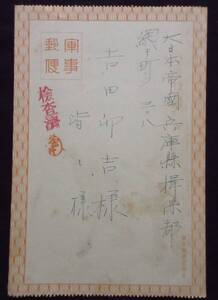 大日本帝國兵庫縣揖保郡
網干町
吉田卯吉様
皆々様
軍事
郵便
検査済